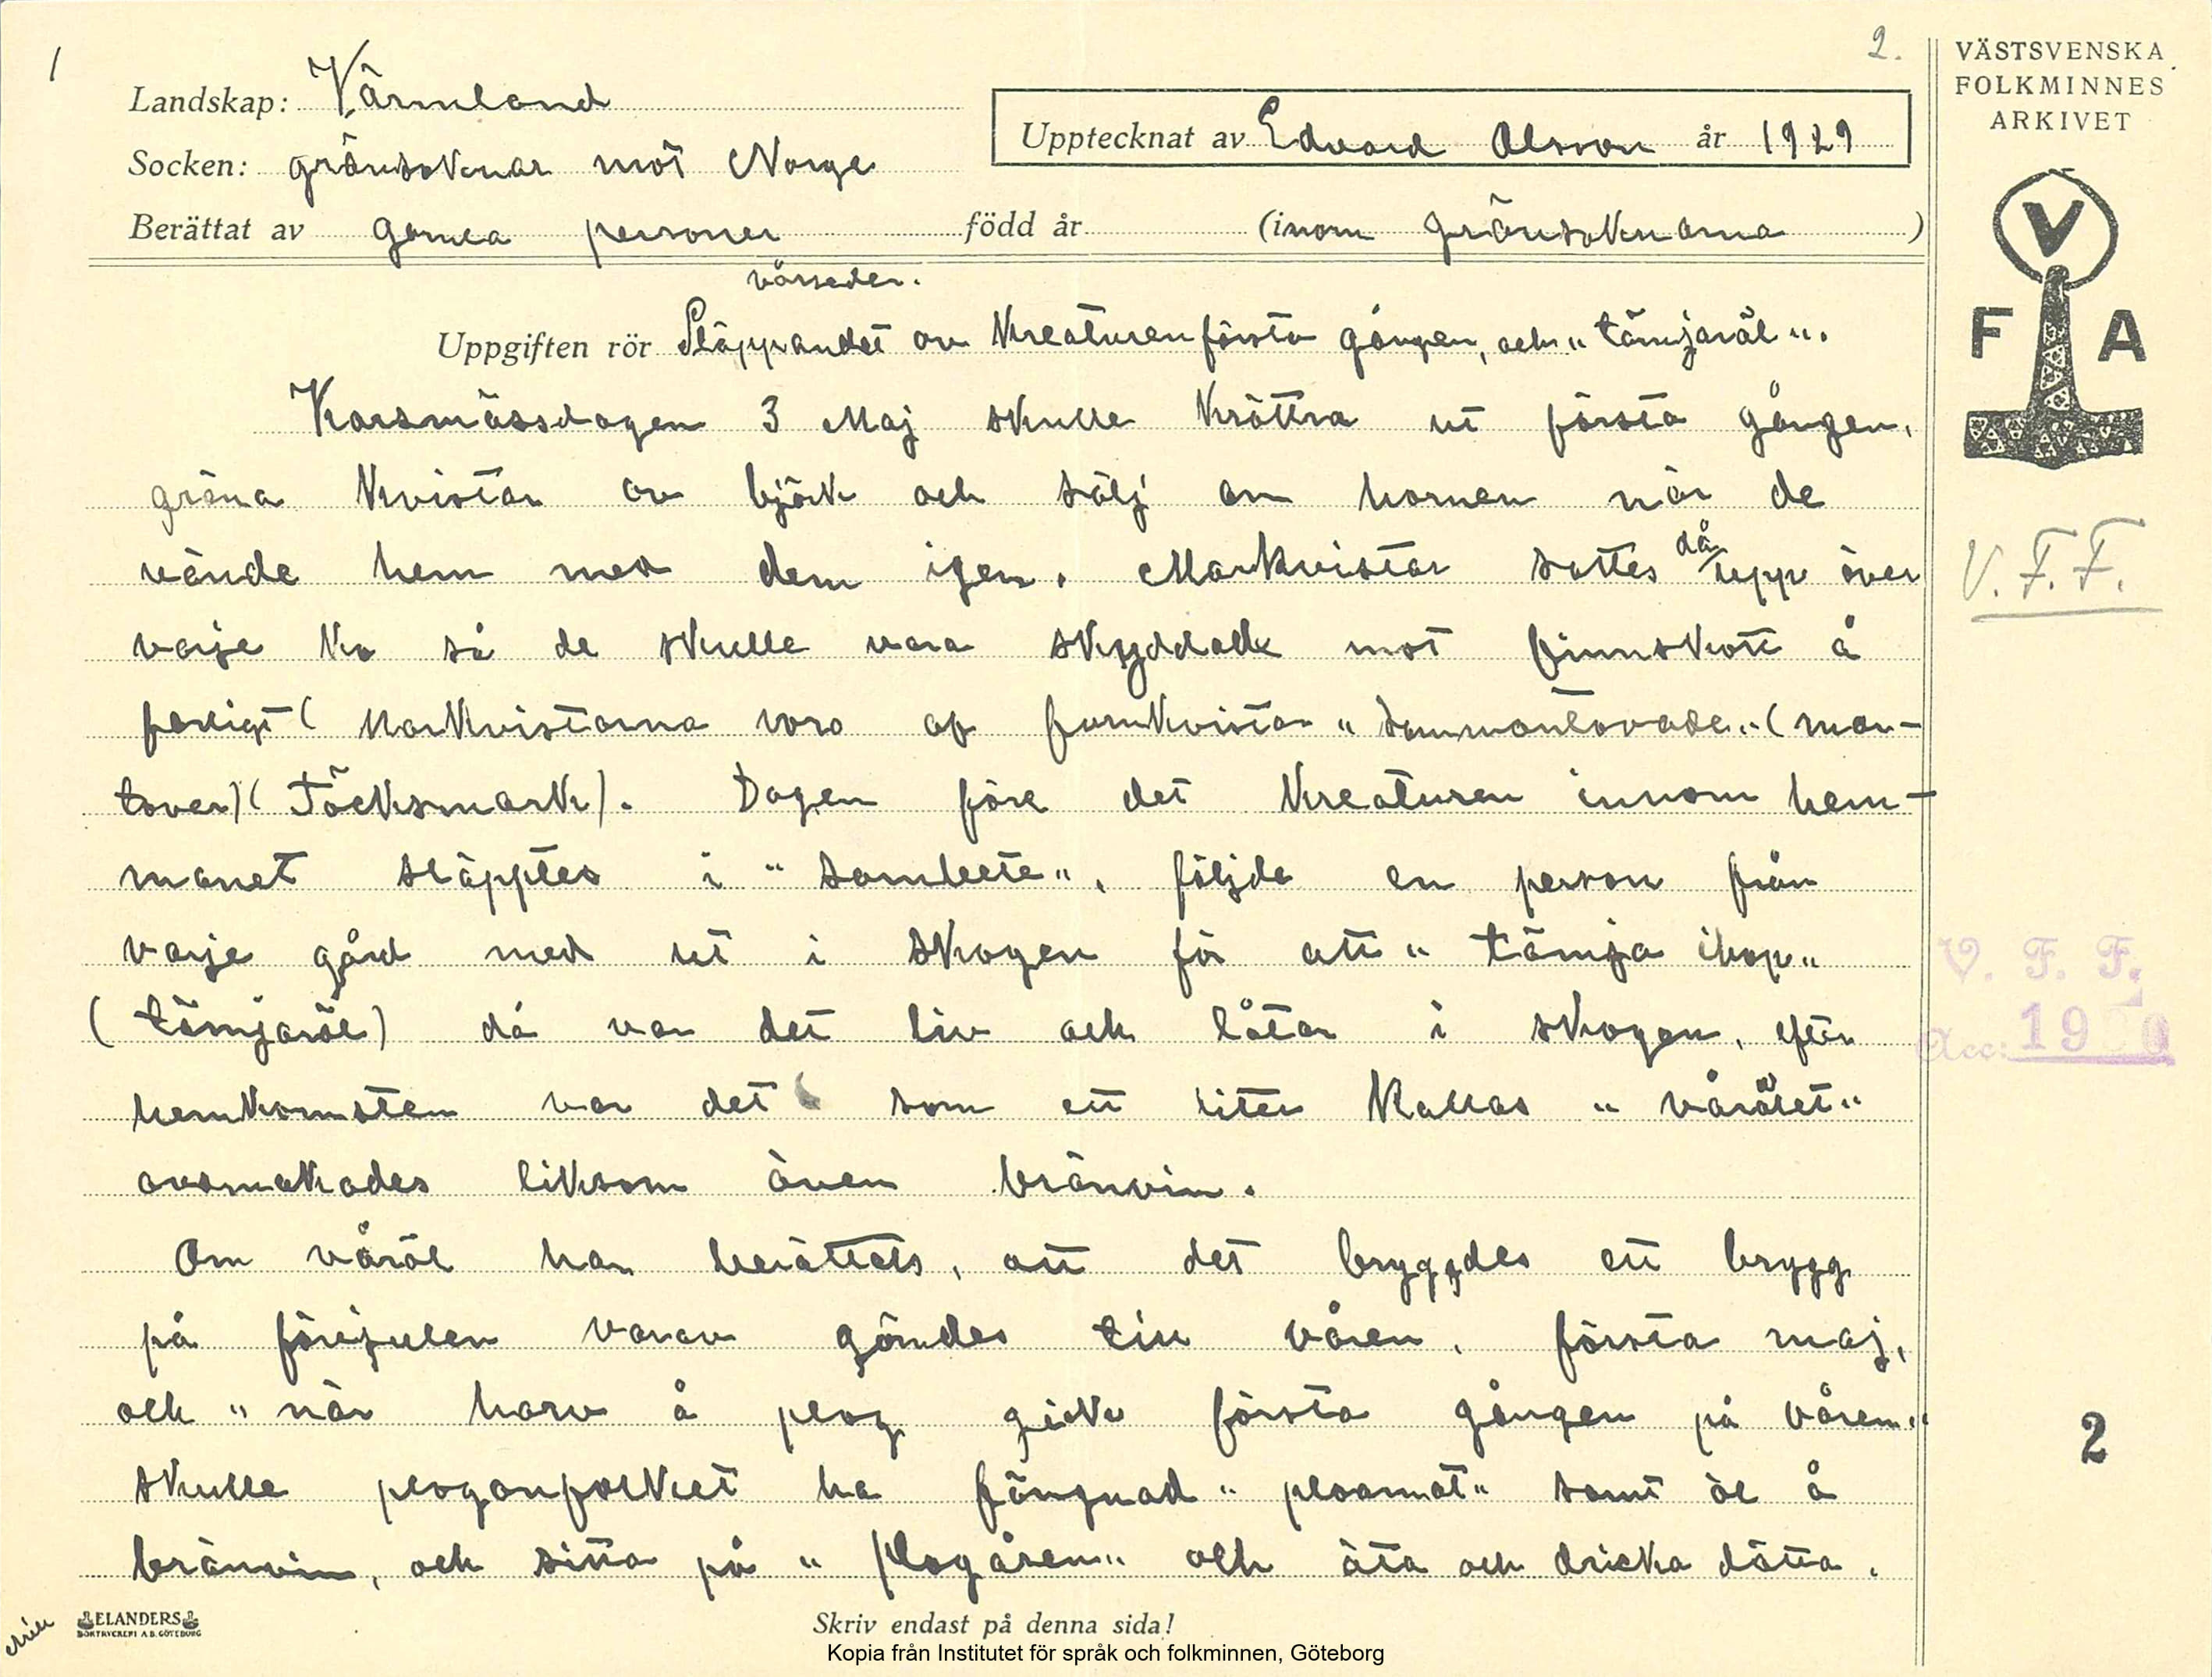 1
2.
VÄSTSVENSKA
FOLKMINNES
ARKIVET
Landskap: Värmland
Upptecknat av Edvard Olsson år 1929
Socken: gränsoknar mot Norge
Berättat av gamla personer född år (inom gränsoknarna)
V
F A
vårseder.
Uppgiften rör Släppandet av Kreaturen första gången, och "tämjaröl".
Korsmässdagen 3 Maj skulle Kröttra ut första gången,
gröna Kvistar av björk och sälj om hornen när de
vände hem med dem igen. Markvistar sattes då upp över
varje Ko så de skulle vara skyddade mot finnskott å
farligt (Markvistarna voro af furukvistar "sammantovade" (mar-
tover) (Töcksmark). Dagen före det Kreaturen innom hem-
manet släpptes i "sambete", följde en person från
varje gård med ut i skogen för att "tämja ihop"
(tämjaröl) då var det liv och låtar i skogen, efter
hemkomsten var det som ett liter Kallas "vårölet"
avsmakades liksom även bränvin.
Om våröl har berättats, att det bryggdes ett brygg
på förejulen varav gömdes till våren, första maj,
och "när harv å plog gick första gången på våren"
skulle plogarfolket ha fängnad "ploamat" samt öl å
bränvin, och sitta på "Plogåsen" och äta och dricka dätta.
V. F. F.
V. F. F.
Acc: 19
2
ELANDERS
BOKTRYCKERI A.B. GÖTEBORG
Skriv endast på denna sida!
Kopia från Institutet för språk och folkminnen, Göteborg